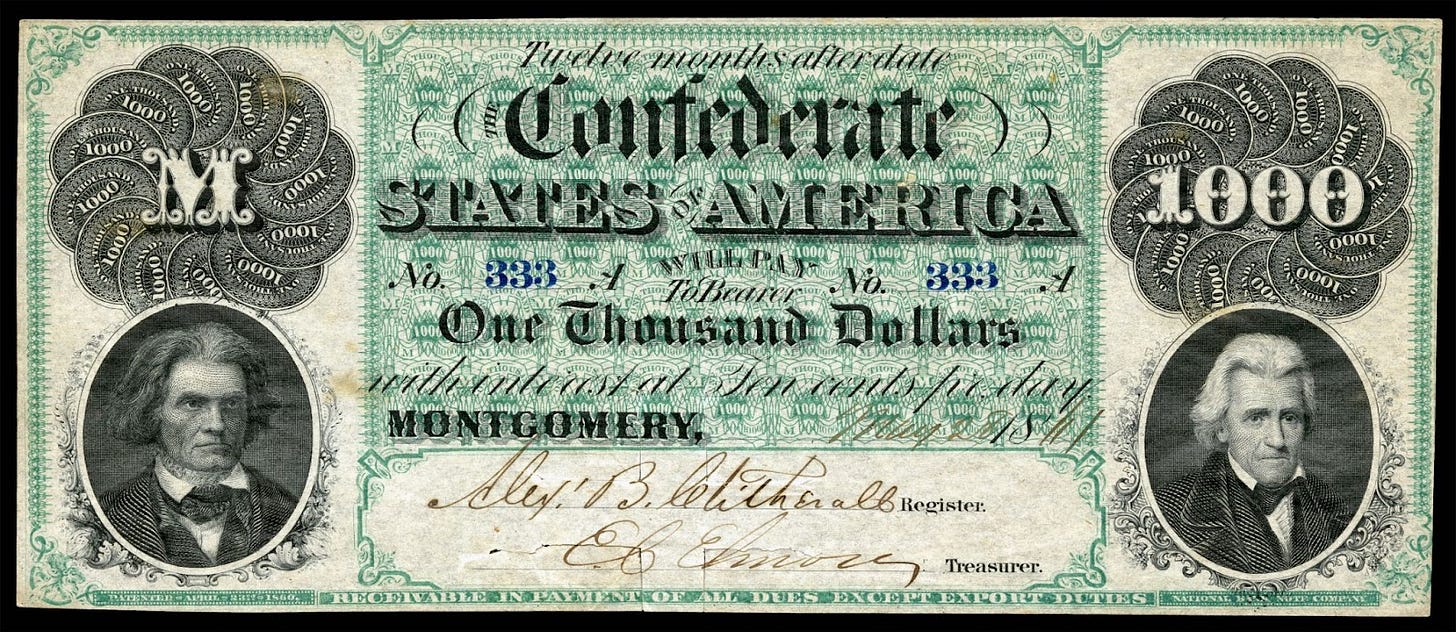 Twelve months after date
THE Confederate
STATES OF AMERICA
No. 333 A WILL PAY To Bearer No. 333 A
One Thousand Dollars
with interest at Ten cents per day
MONTGOMERY, May 28 1861
Alexr. B. Clitherall Register.
E C Elmore Treasurer.
M
1000
PATENTED APRIL 28TH 1860.
RECEIVABLE IN PAYMENT OF ALL DUES EXCEPT EXPORT DUTIES
NATIONAL BANK NOTE COMPANY
ONE THOUSAND
1000